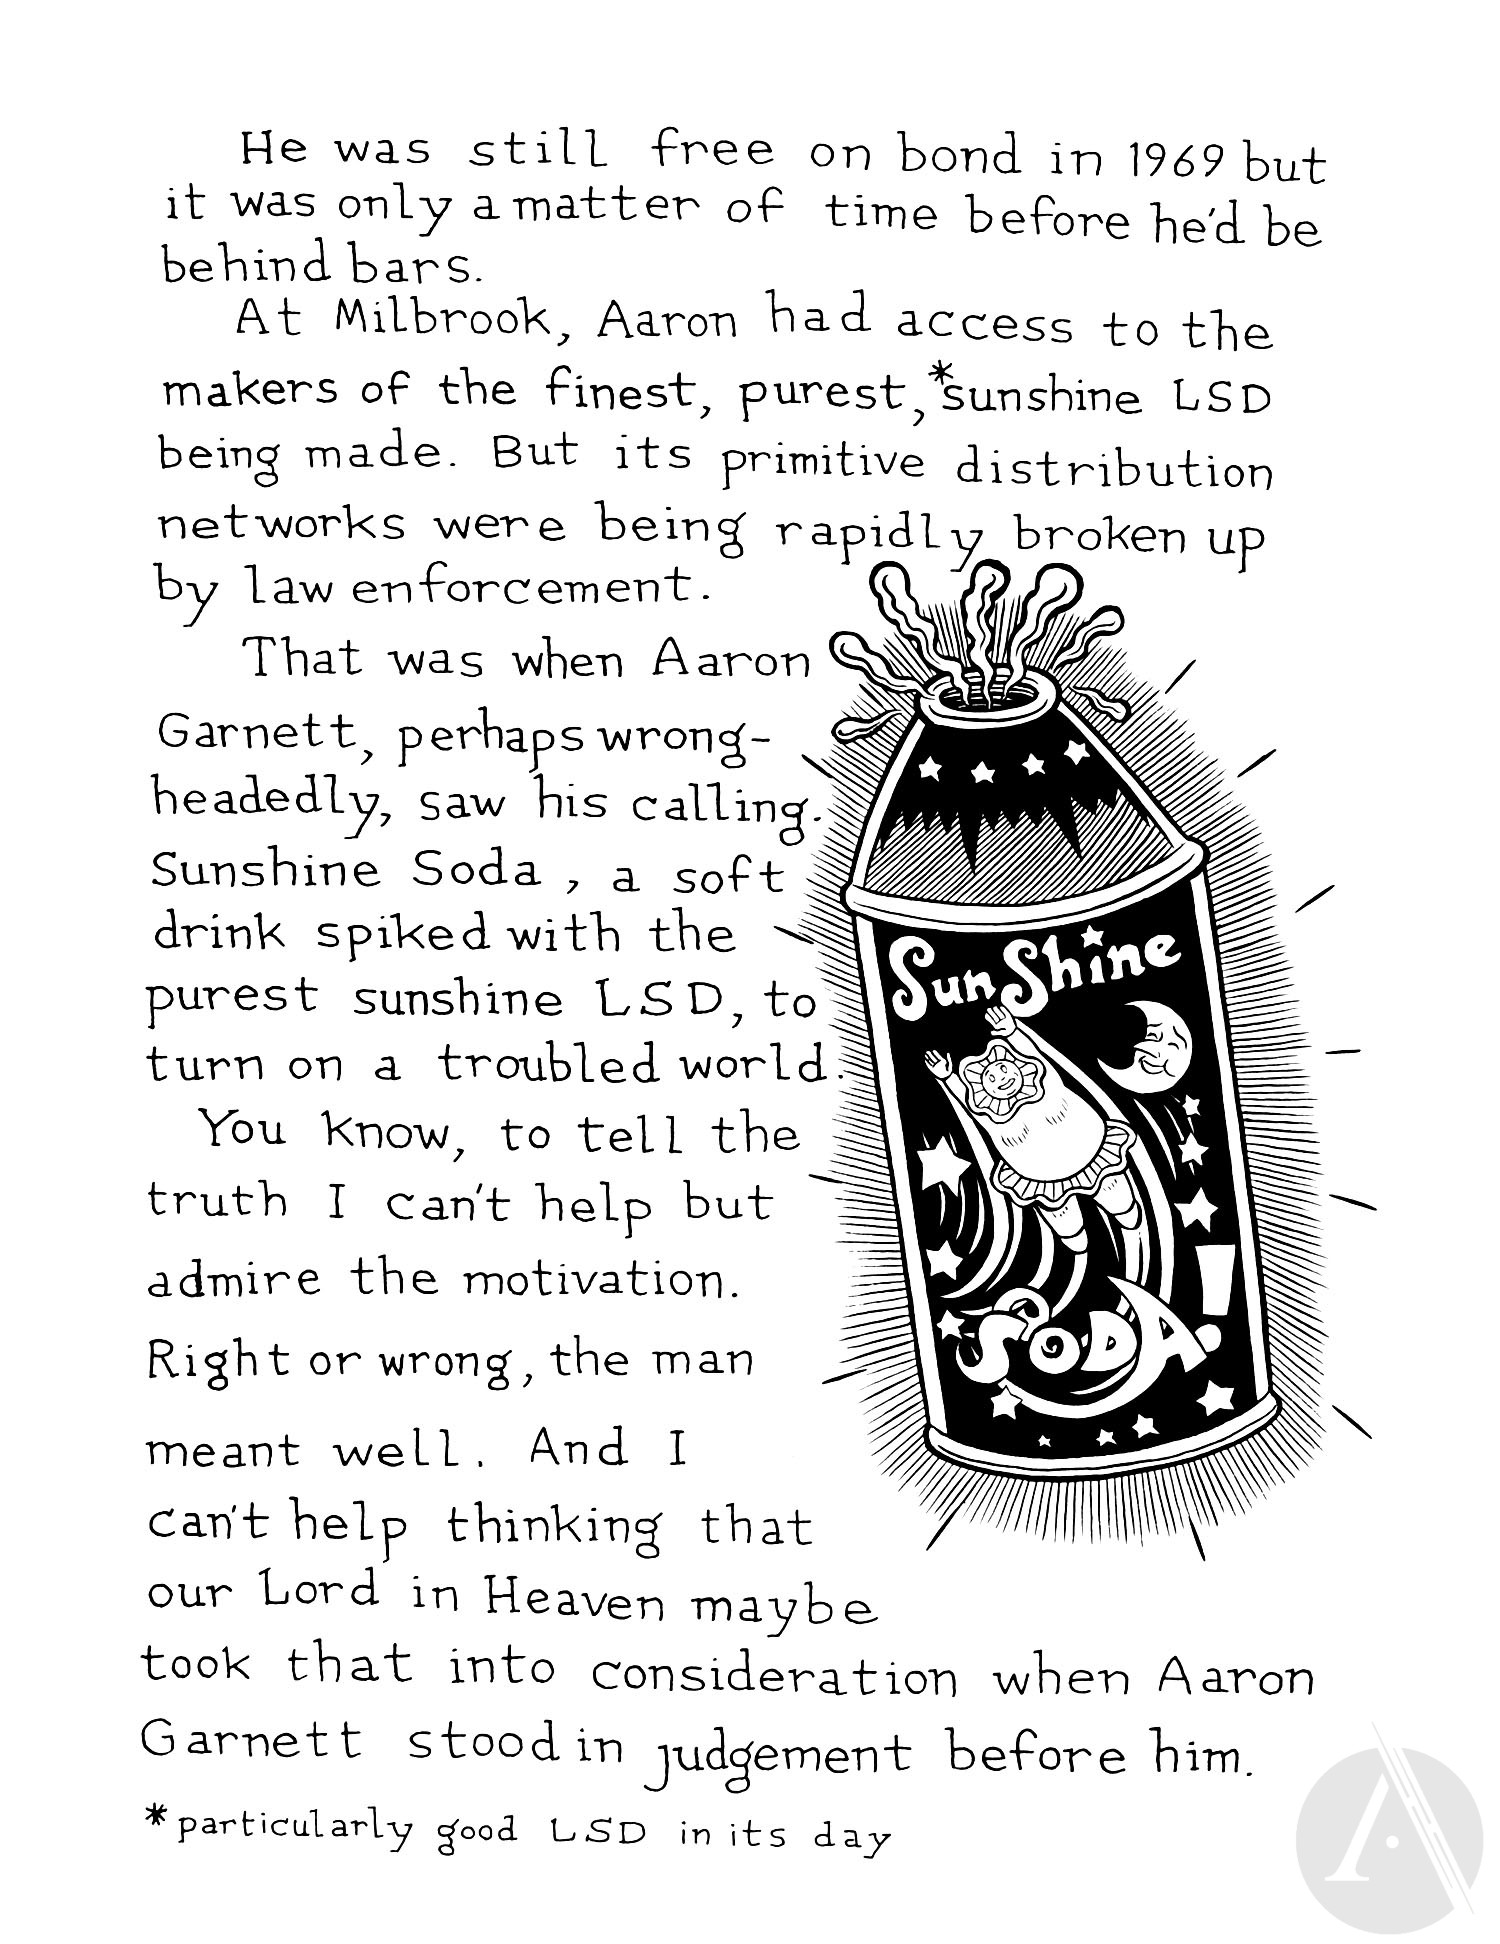 He was still free on bond in 1969 but
it was only a matter of time before he'd be
behind bars.
At Milbrook, Aaron had access to the
makers of the finest, purest, *sunshine LSD
being made. But its primitive distribution
networks were being rapidly broken up
by law enforcement.
That was when Aaron
Garnett, perhaps wrong-
headedly, saw his calling.
Sunshine Soda, a soft
drink spiked with the
purest sunshine LSD, to
turn on a troubled world.
You know, to tell the
truth I can't help but
admire the motivation.
Right or wrong, the man
meant well. And I
can't help thinking that
our Lord in Heaven maybe
took that into consideration when Aaron
Garnett stood in judgement before him.
*particularly good LSD in its day
SunShine
SODA!
A